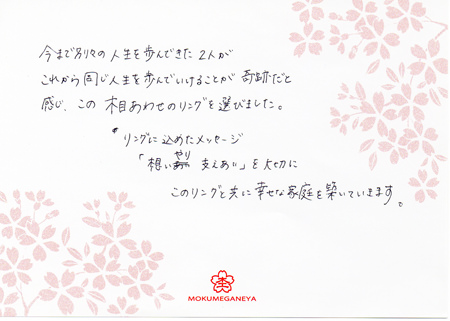 今まで別々の人生を歩んできた2人が
これから同じ人生を歩んでいけることが奇跡だと
感じ、この木目あわせのリングを選びました。
リングに込めたメッセージ
「想いやり 支えあい」を大切に
このリングと共に幸せな家庭を築いていきます。
MOKUMEGANEYA